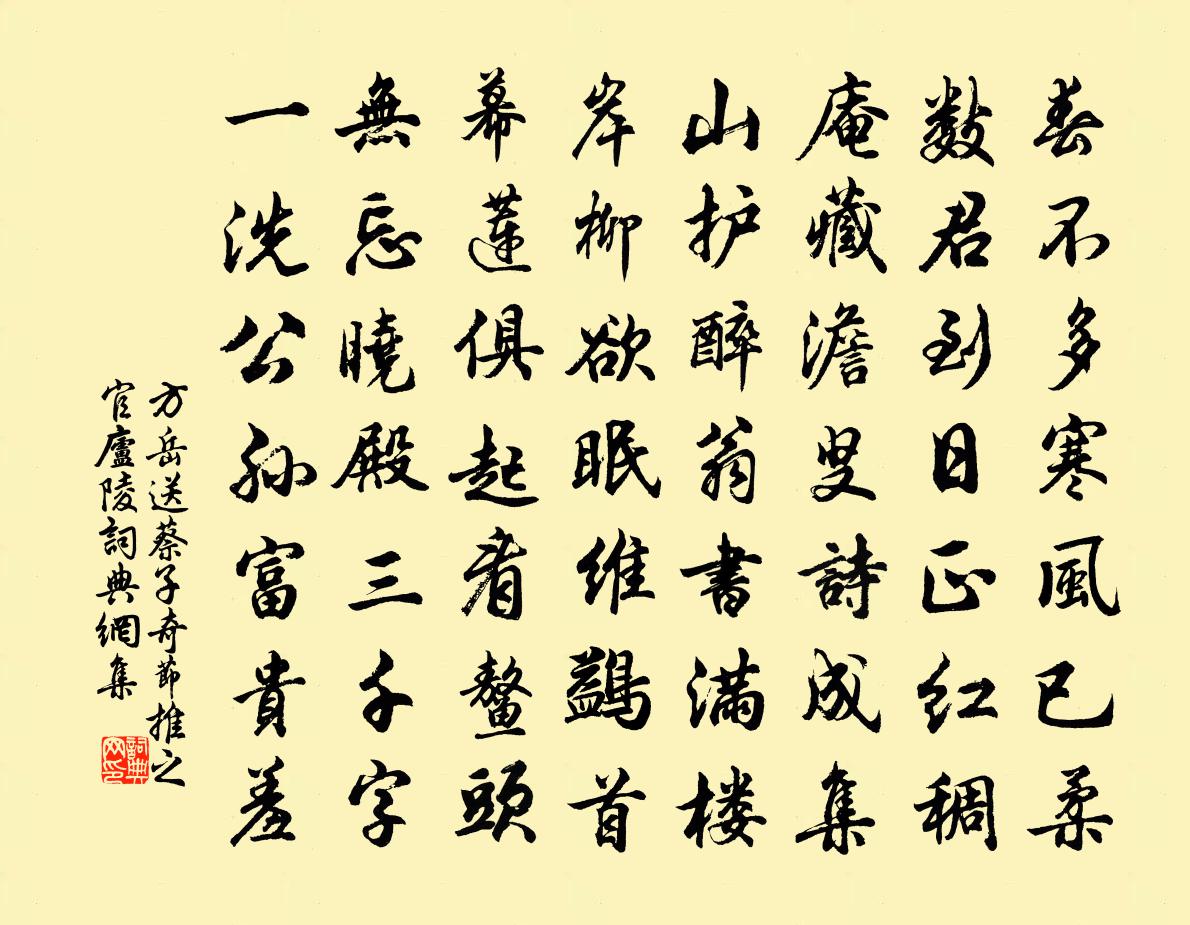 春不多寒風已柔
數君到日正红稠
庵藏澹叟詩成集
山护醉翁書满楼
岸柳欲眠維鷁首
幕蓮俱起看鳌頭
無忘曉殿三千字
一洗公孙富貴羞
方岳送蔡子奇節推之
官廬陵詞典網集